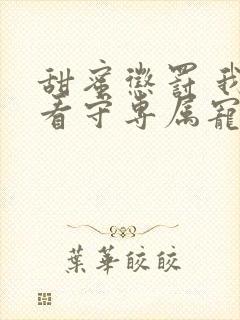 甜蜜懲罰我
看守專屬寵
葉華皎皎